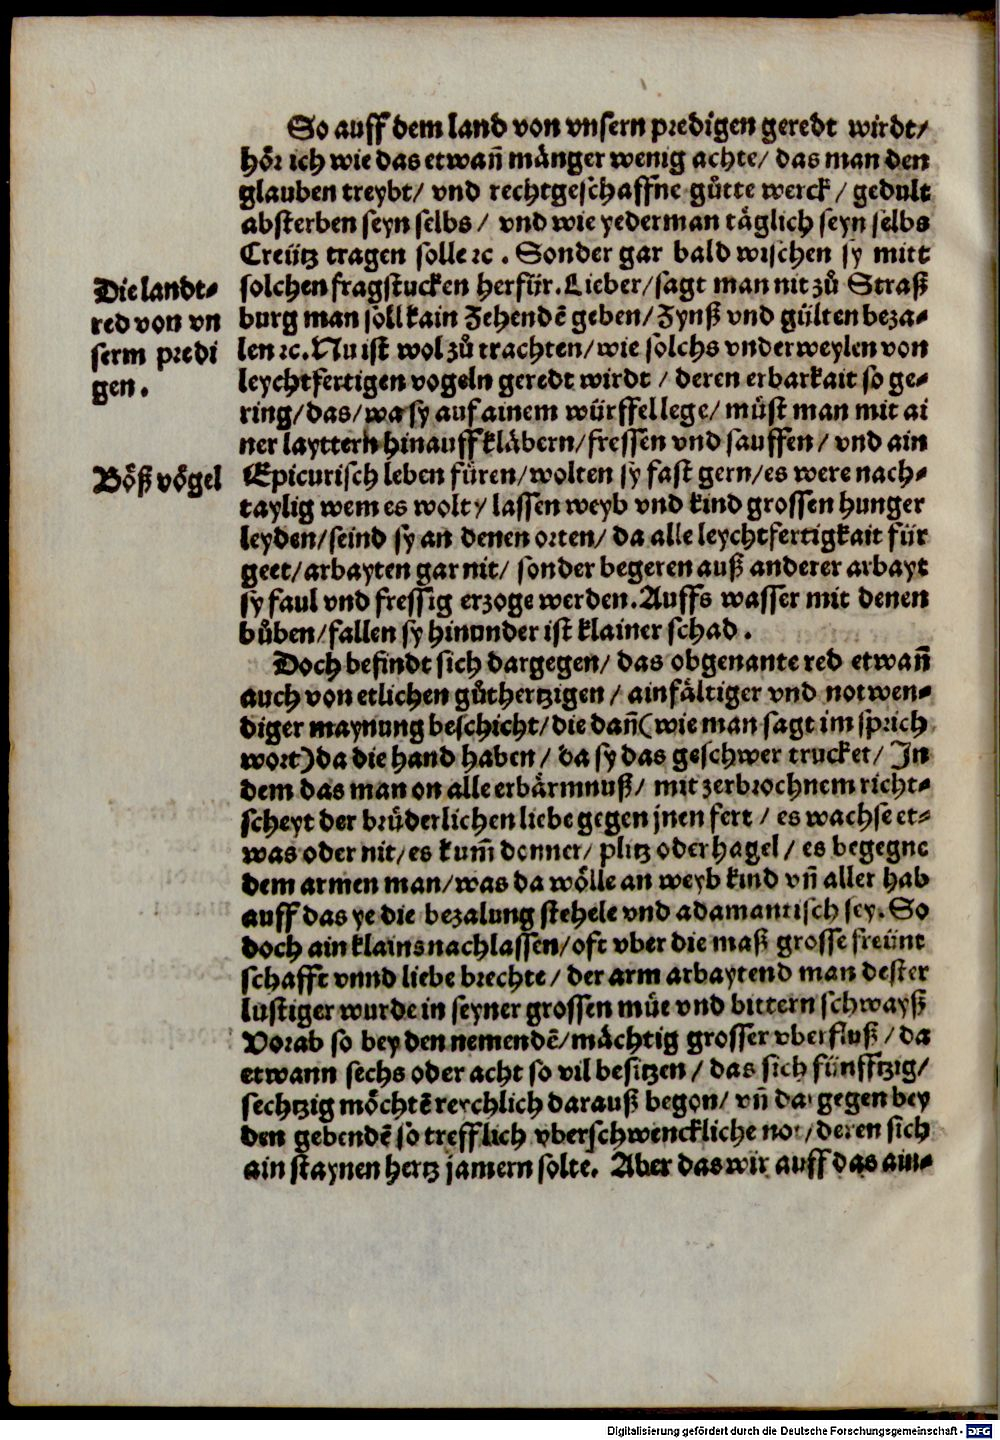 So auff dem land von vnsern predigen geredt wirdt/
hör ich wie das etwañ mänger wenig achte/ das man den
glauben treybt/ vnd rechtgeschaffne gůtte werck/ gedult
absterben seyn selbs/ vnd wie yederman täglich seyn selbs
Creütz tragen solle ꝛc. Sonder gar bald wischen sy mitt
Die landt-
red von vn
serm predi
gen.
solchen fragstucken herfür. Lieber/ sagt man nit zů Straß
burg man soll kain Zehendẽ geben/ Zynß vnd gülten beza-
len ꝛc. Nu ist wol zů trachten/ wie solchs vnderweylen von
leychtfertigen vogeln geredt wirdt/ deren erbarkait so ge-
ring/ das/ wa sy auf ainem würffel lege/ müst man mit ai
ner layttern hinauff kläbern/ fressen vnd sauffen/ vnd ain
Böß vögel
Epicurisch leben füren/ wolten sy fast gern/ es were nach-
taylig wem es wolt/ lassen weyb vnd kind grossen hunger
leyden/ seind sy an denen orten/ da alle leychtfertigkait für
geet/ arbayten gar nit/ sonder begeren auß anderer arbayt
sy faul vnd fressig erzoge werden. Auffs wasser mit denen
bůben/ fallen sy hinunder ist klainer schad.
Doch befindt sich dargegen/ das obgenante red etwañ
auch von etlichen gůthertzigen/ ainfältiger vnd notwen-
diger maynung beschicht/ die dañ (wie man sagt im sprich
wort) da die hand haben/ da sy das geschwer trucket/ In
dem das man on alle erbärmnuß/ mit zerbrochnem richt-
scheyt der brüderlichen liebe gegen jnen fert/ es wachse et-
was oder nit/ es kum̃ donner/ plitz oder hagel/ es begegne
dem armen man/ was da wölle an weyb kind vñ aller hab
auff das ye die bezalung stehele vnd adamantisch sey. So
doch ain klains nachlassen/ oft vber die maß grosse freünt
schafft vnnd liebe brechte/ der arm arbaytend man dester
lustiger wurde in seyner grossen müe vnd bittern schwayß
Vorab so bey den nemendẽ/ mächtig grosser vberfluß/ da
etwann sechs oder acht so vil besitzen/ das sich fünfftzig/
sechtzig möchtẽ reychlich darauß begon/ vñ dargegen bey
den gebendẽ so trefflich vberschwenckliche not/ deren sich
ain staynen hertz jamern solte. Aber das wir auff das ain-
Digitalisierung gefördert durch die Deutsche Forschungsgemeinschaft - DFG